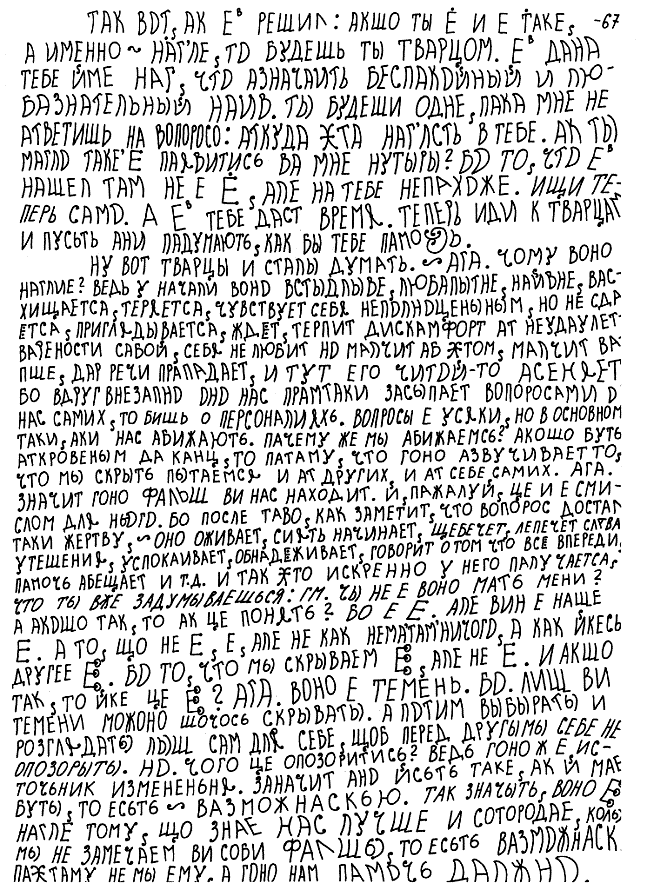 ТАК ВОТ, АК Ев РЕШИЛ: АКШО ТЫ Ё И Е ТАКЕ, -67
А ИМЕННО ~ НАГЛЕ, ТО БУДЕШЬ ТЫ ТВАРЦОМ. Ев ДАНА
ТЕБЕ ИМЕ НАГ, ЧТО АЗНАЧАИТЬ БЕСПАКОЙНЫЙ И ЛЮ-
БАЗНАТЕЛЬНЫЙ НАИВ. ТЫ БУДЕШИ ОДНЕ, ПАКА МНЕ НЕ
АТВЕТИШЬ НА ВОПОРОСО: АТКУДА ЭТА НАГЛСТЬ В ТЕБЕ. АК ТЫ
МАГЛО ТАКЕ Ё ПАЯВИТИСЬ ВА МНЕ НУТЫРЫ? БО ТО, ЧТО Ев
НАШЕЛ ТАМ НЕ Е Ё, АЛЕ НА ТЕБЕ НЕПАХОЖЕ. ИЩИ ТЕ-
ПЕРЬ САМО. А Ев ТЕБЕ ДАСТ ВРЕМЯ. ТЕПЕРЬ ИДИ К ТВАРЦАМ
И ПУСЬТЬ АНИ ПАДУМАЮТЬ, КАК БЫ ТЕБЕ ПАМОЧЬ.
НУ ВОТ ТВАРЦЫ И СТАЛЫ ДУМАТЬ. ~ АГА. ЧОМУ ВОНО
НАГЛИЕ? ВЕДЬ У НАЧАЛИ ВОНО ВСТЫДЛЫВЕ, ЛЮБАПЫТНЕ, НАИВНЕ, ВАС-
ХИЩАЕТСА, ТЕРЯЕТСА, ЧУВСТВУЕТ СЕБЯ НЕПОЛНОЦЕНЫНЫМ, НО НЕ СДА
ЕТСА, ПРИГЛЯДЫВАЕТСА, ЖДЕТ, ТЕРПИТ ДИСКАМФОРТ АТ НЕУДАУЛЕТ-
ВАРЕНОСТИ САБОЙ, СЕБЯ НЕ ЛЮБИТ НО МАЛЧИТ АБ ЭТОМ, МАЛЧИТ ВА
ПЩЕ, ДАР РЕЧИ ПРАПАДАЕТ, И ТУТ ЕГО ЧИТОЙ-ТО АСЕНЯЕТ
БО ВДРУГ ВНЕЗАПНО ОНО НАС ПРАМТАКИ ЗАСЫПАЕТ ВОПОРОСАМИ О
НАС САМИХ, ТО БИШЬ О ПЕРСОНАЛИЯХЬ. ВОПРОСЫ Е УСЯКИ, НО В ОСНОВНОМ
ТАКИ, АКИ НАС АБИЖАЮТЬ. ПАЧЕМУ ЖЕ МЫ АБИЖАЕМСЬ? АКОШО БУТЬ
АТКРОВЕНЫМ ДА КАНЦ, ТО ПАТАМУ, ЧТО ГОНО АЗВУЧИВАЕТ ТО,
ЧТО МЫ СКРЫТЬ ПЫТАЕМСЯ И АТ ДРУГИХ, И АТ СЕБЕ САМИХ. АГА.
ЗНАЧИТ ГОНО ФАЛЬШ ВИ НАС НАХОДИТ. И, ПАЖАЛУЙ, ЦЕ И Е СМИ-
СЛОМ ДЛЯ НЬОГО. БО ПОСЛЕ ТАВО, КАК ЗАМЕТИТ, ЧТО ВОПОРОС ДОСТАЛ
ТАКИ ЖЕРТВУ, ~ ОНО ОЖИВАЕТ, СИЯТЬ НАЧИНАЕТ, ЩЕБЕЧЕТ, ЛЕПЕЧЕТ СЛАВА
УТЕШЕНИЯ, УСПОКАИВАЕТ, ОБНАДЕЖИВАЕТ, ГОВОРИТ О ТОМ ЧТО ВСЕ ВПЕРЕДИ,
ПАМОЧЬ АБЕЩАЕТ И Т.Д. И ТАК ЭТО ИСКРЕННО У НЕГО ПАЛУЧАЕТСА,
ЧТО ТЫ ВЖЕ ЗАДУМЫВАЕШЬСЯ: ГМ. ЧЫ НЕ Е ВОНО МАТЬ МЕНИ?
А АКОШО ТАК, ТО АК ЦЕ ПОНЯТЬ? БО Е Ё. АЛЕ ВИН Е НАЩЕ
Ё. А ТО, ЩО НЕ Ё, Е, АЛЕ НЕ КАК НЕМАТАМНИЧОГО, А КАК ИКЕСЬ
ДРУГЕЕ Ё. БО ТО, ЧТО МЫ СКРЫВАЕМ Ё, АЛЕ НЕ Ё. И АКШО
ТАК, ТО ЙКЕ ЦЕ Ё? АГА. ВОНО Е ТЕМЕНЬ. БО. ЛИШ ВИ
ТЕМЕНИ МОЖОНО ШОЧОСЬ СКРЫВАТЫ. А ПОТИМ ВЫБЫРАТЫ И
РОЗГЛЯДАТЬ ЛЫШ САМ ДЛЯ СЕБЕ, ЩОБ ПЕРЕД ДРУГЫМЫ СЕБЕ НЕ
ОПОЗОРЫТЫ. НО. ЧОГО ЦЕ ОПОЗОРИТИСЬ? ВЕДЬ ГОНО Ж Е, ИС-
ТОЧЬНИК ИЗМЕНЕНЬНЯ. ЗАНАЧИТ АНО ЙСЬТЬ ТАКЕ, АК Й МАЕ
БУТЫ, ТО ЕСЬТЬ ~ ВАЗМОЖНАСКЬЮ. ТАК ЗНАЧЫТЬ, ВОНО Ё
НАГЛЕ ТОМУ, ЩО ЗНАЕ НАС ЛУЧШЕ И СОТОРОДАЕ, КОЛЫ
МЫ НЕ ЗАМЕЧАЕМ ВИ СОБИ ФАЛЬШЬ, ТО ЕСЬТЬ ВАЗМОЖНАСК
ПАЭТАМУ НЕ МЫ ЕМУ, А ГОНО НАМ ПАМОЧЬ ДАЛЖНО.